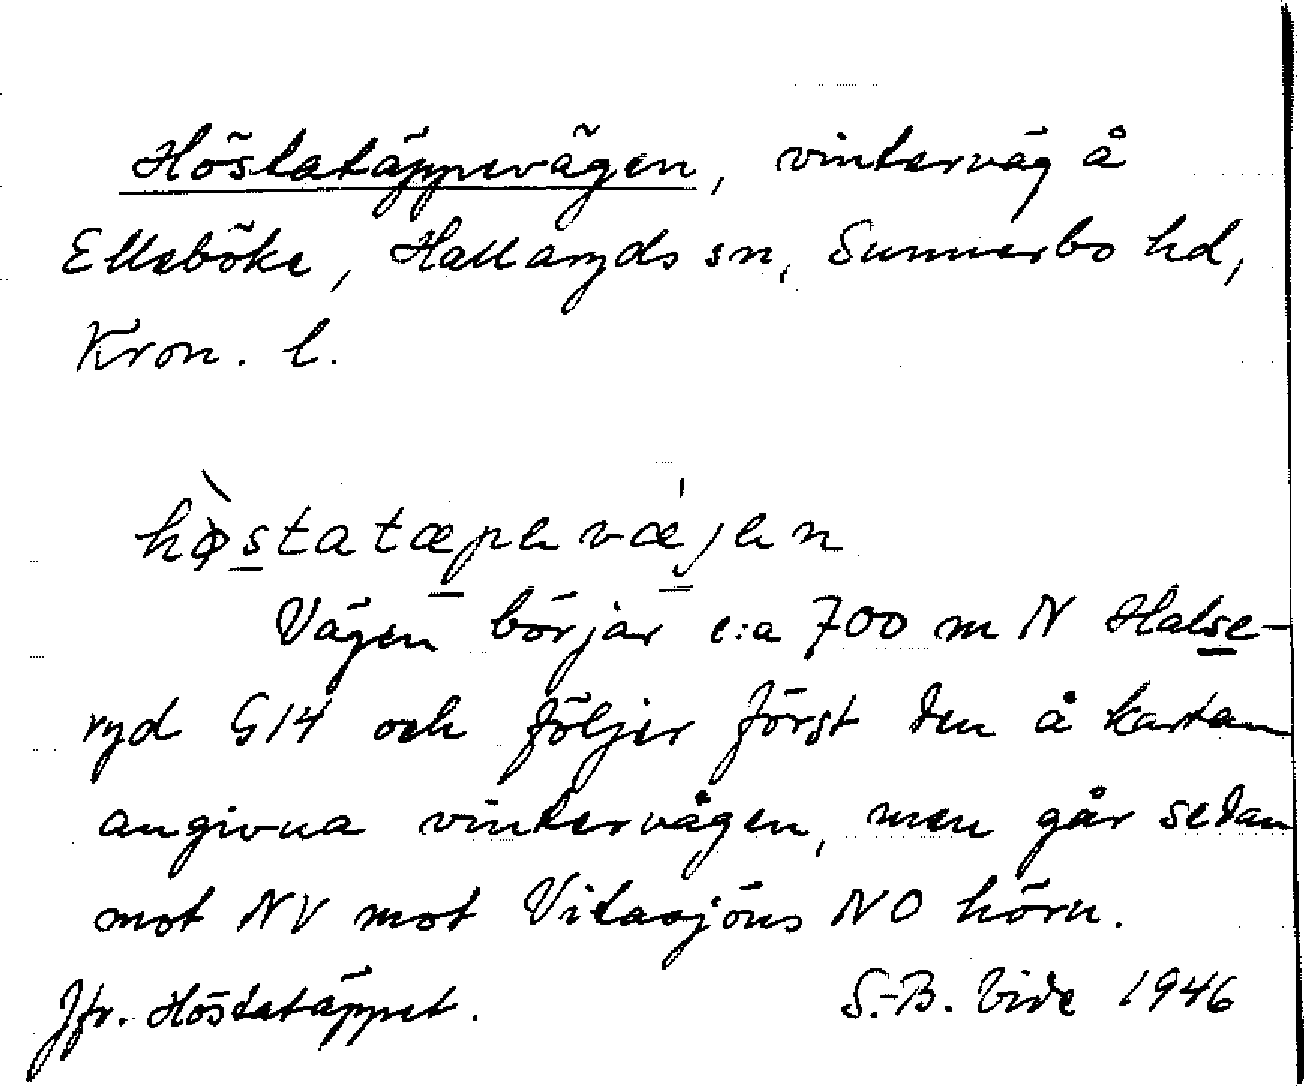 Höstatäppevägen, vinterväg å
Elleböke, Hallaryds sn, Sunnerbo hd,
Kron. l.
hø̀statæpevæ̍jen
Vägen börjar c:a 700 m N Halse-
ryd G14 och följer först den å kartan
angivna vintervägen, men går sedan
mot NV mot Vitasjöns NO hörn.
Jfr. Höstatäppet. S.-B. Vide 1946